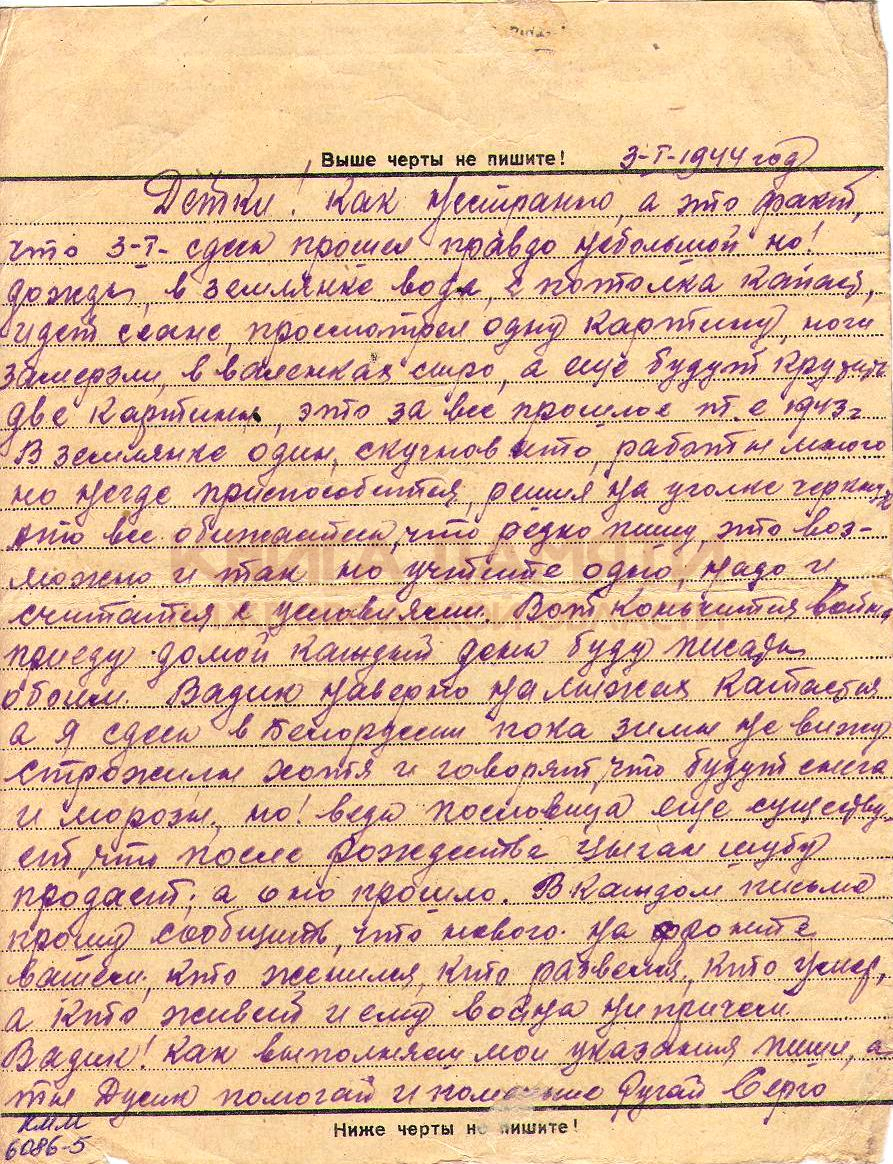 Выше черты не пишите!
3-I-1944 год
Детки! Как нестранно, а это факт,
что 3-I- сдесь прошел правдо небольшой но!
дождь, в землянке вода, с потолка капает,
идет сеанс, просмотрел одну картину, ноги
замерзли, в валенках сыро, а еще будут крутить
две картины, это за все прошлое т.е 1943г
В землянке один, скучновато, работы много
но негде приспособится, решил на уголке черкнуть
что все обижаетесь, что редко пишу, это воз-
можно и так но учтите одно, надо и
считатся с условиями. Вот кончится война
приеду домой каждый день буду писать
обоим. Вадик наверно на лыжах катается
а я сдесь в Белоруссии пока зимы не вижу
строжилы хотя и говорят, что будут снега
и морозы, но! ведь пословица еще существу-
ет, что после рождества цыган шубу
продает, а оно прошло. В каждом письме
прошу сообщить, что нового на фронте
вашем, кто женился, кто развелся, кто умер,
а кто живет и ему война нипричем
Вадик! Как выполняеш мои указания пиши, а
ты Дусик помогай и поменьше ругай Серго
Ниже черты не пишите!
КММ
6086-5
КНИГА ПАМЯТИ